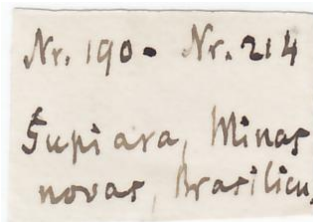 Nr. 190. Nr. 214
Gupiara, Minas
novas, Brasilien,